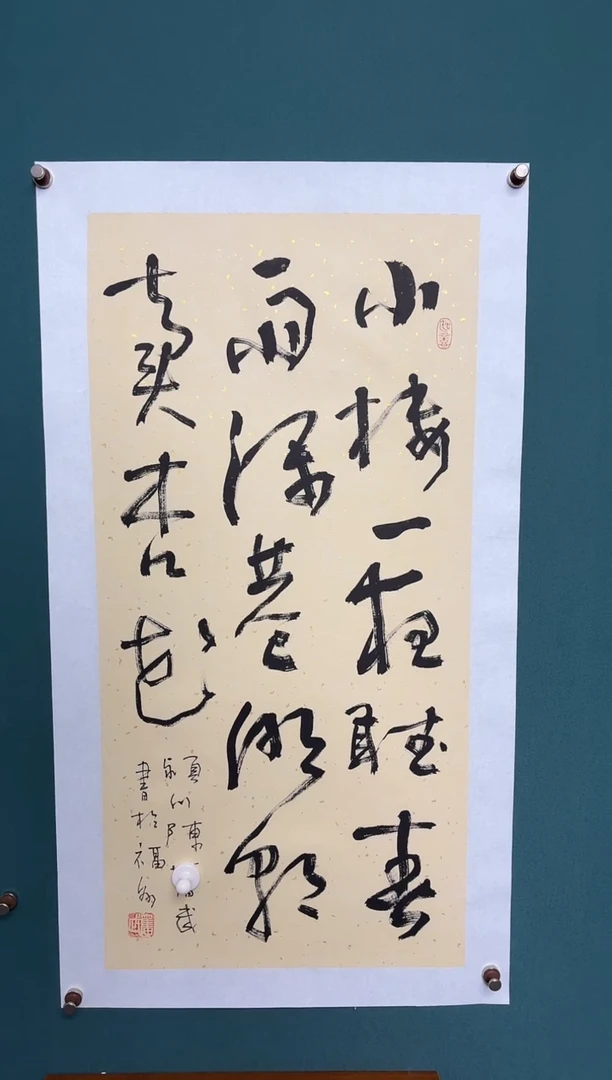 小樓一夜聽春
雨深巷明朝
賣杏花
書於福州